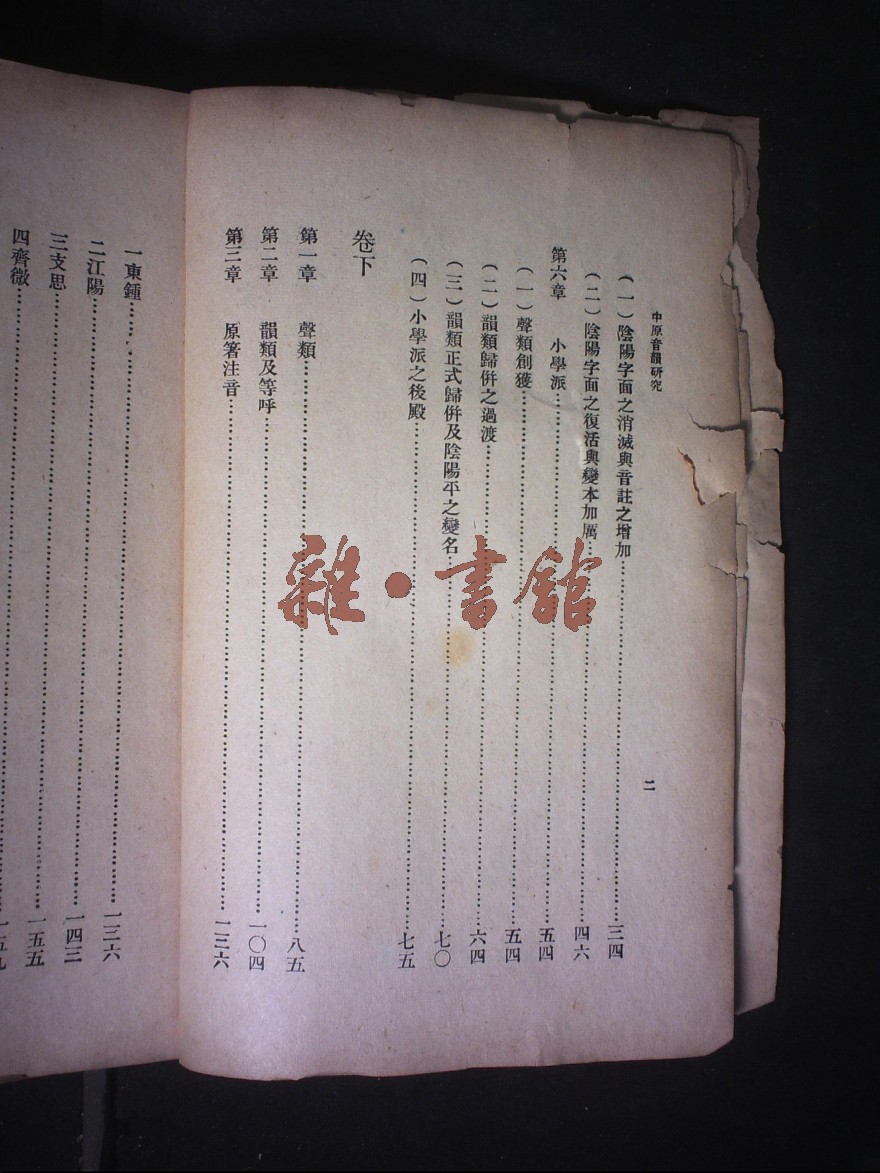 中原音韻研究
二
（一）陰陽字面之消滅與音註之增加……三四
（二）陰陽字面之復活與變本加厲……四六
第六章　小學派……五四
（一）聲類創獲……五四
（二）韻類歸併之過渡……六四
（三）韻類正式歸併及陰陽平之變名……七〇
（四）小學派之後殿……七五
卷下
第一章　聲類……八五
第二章　韻類及等呼……一〇四
第三章　原箸注音……一三六
一東鍾……一三六
二江陽……一四三
三支思……一五五
四齊微……一五九
雜·書館